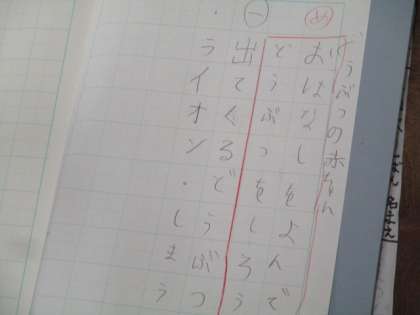 どうぶつの赤ちゃん
め おはなしをよんで
どうぶつをしろう
一 出てくるどうぶつ
・ライオン・しまう